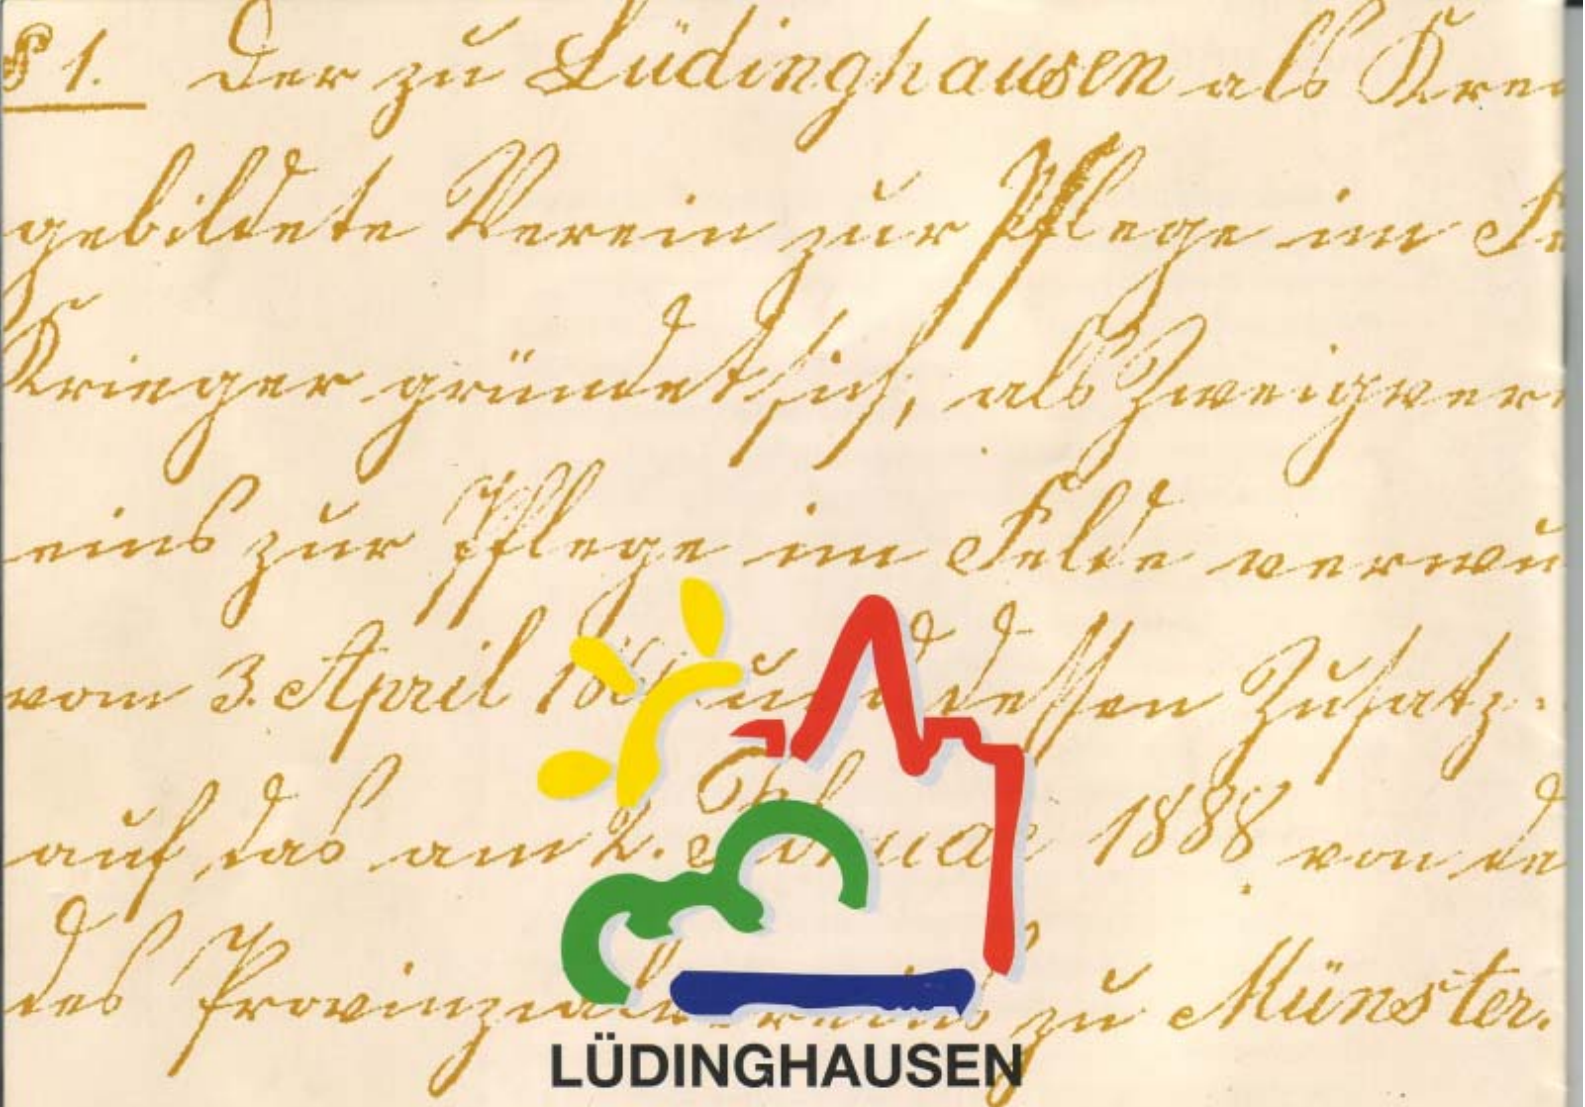 § 1. Der zu Lüdinghausen als Krei
gebildete Verein zur Pflege im Fe
Krieger gründet sich, als Zweigver
eins zur Pflege im Felde verwu
vom 3. April und dessen Zusatz-
auf das am 2. Februar 1888 von de
des Provinzialvereins zu Münster.
LÜDINGHAUSEN